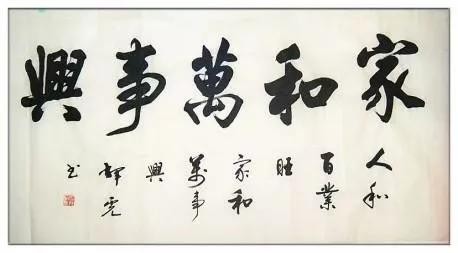 家和萬事興
人和
百業
旺
家和
萬事
興
書